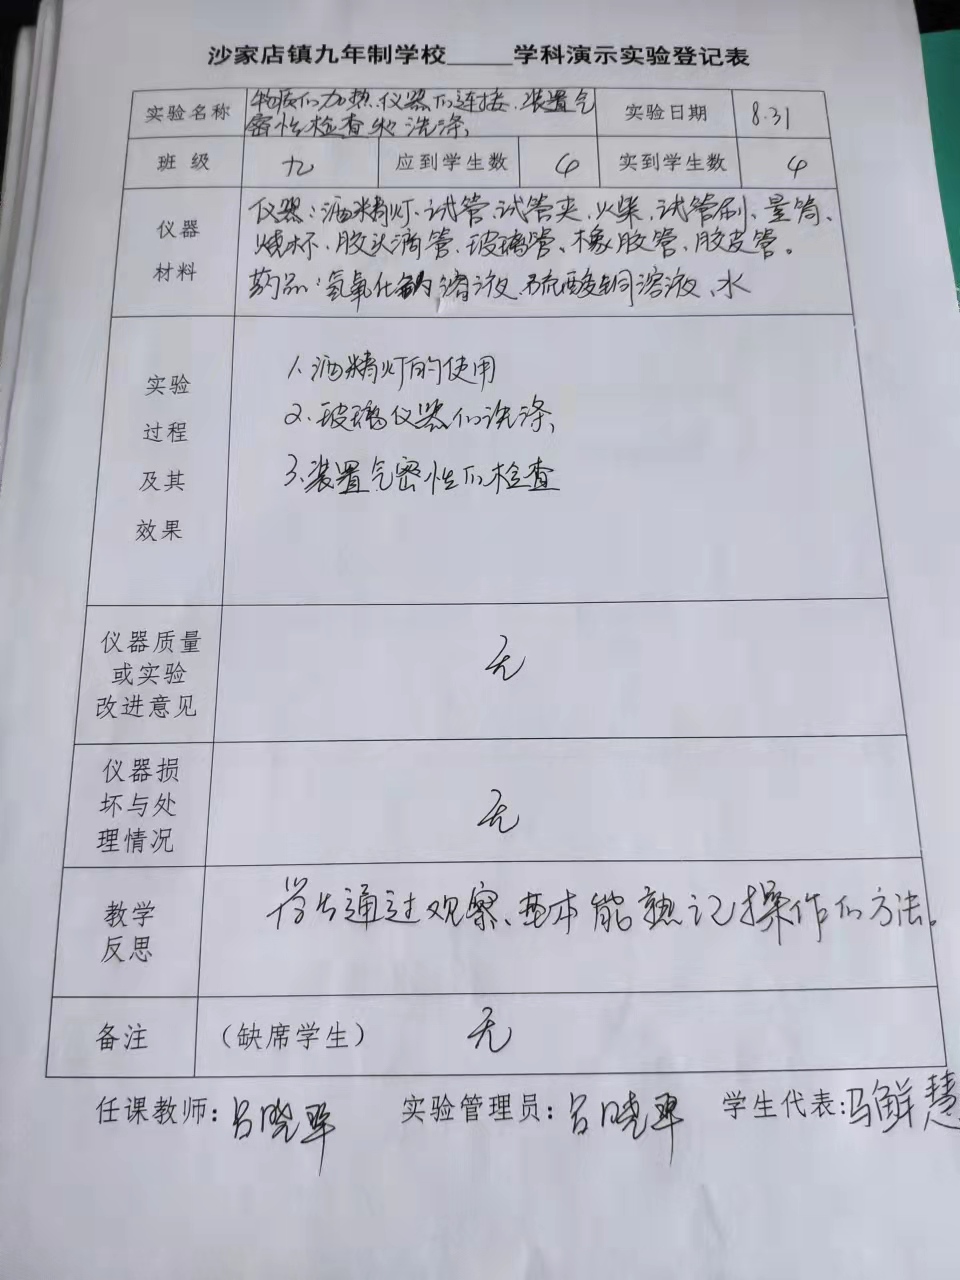 沙家店镇九年制学校_____学科演示实验登记表
实验名称 物质的加热、仪器的连接、装置气 实验日期 8.31
密性检查和洗涤、
班 级 九 应到学生数 4 实到学生数 4
仪器 仪器:酒精灯、试管、试管夹、火柴、试管刷、量筒、
烧杯、胶头滴管、玻璃管、橡胶管、胶皮管。
材料 药品:氢氧化钠溶液、硫酸铜溶液、水
实验 1.酒精灯的使用
过程 2.玻璃仪器的洗涤、
及其 3.装置气密性的检查
效果
仪器质量
或实验 无
改进意见
仪器损
坏与处 无
理情况
教学 学生通过观察、基本能熟记操作的方法。
反思
备注 (缺席学生) 无
任课教师:吕晓 实验管理员:吕晓 学生代表:冯鲜慧